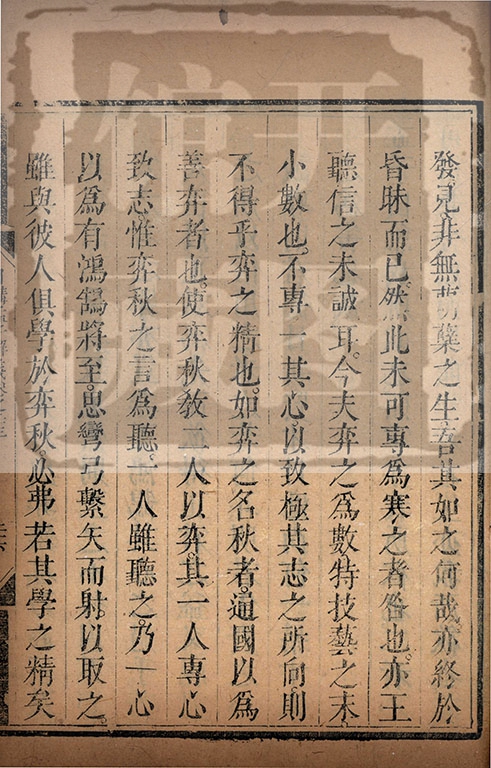 發見非無萌蘗之生吾其如之何哉亦終於
昏昧而已然此未可專為寒之者咎也亦王
聽信之未誠耳今夫弈之為數特技藝之末
小數也不專一其心以致極其志之所向則
不得乎弈之精也如弈之名秋者通國以為
善弈者也使弈秋敎二人以弈其一人專心
致志惟弈秋之言為聽一人雖聽之乃一心
以為有鴻鵠將至思彎弓繫矢而射以取之
雖與彼人俱學於弈秋必弗若其學之精矣